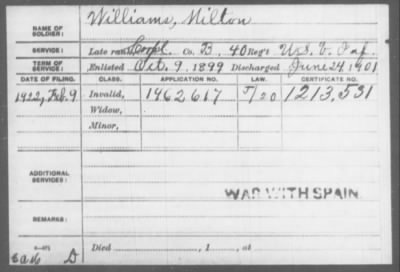 NAME OF SOLDIER: Williams, Milton
SERVICE: Late rank, Corpl. Co. B, 40 Reg't U.S. V. Inf.
TERM OF SERVICE: Enlisted Oct. 9, 1899 Discharged June 24, 1901
DATE OF FILING. CLASS. APPLICATION NO. LAW. CERTIFICATE NO.
1922, Feb. 9 Invalid, 1462617 1213,531
Widow,
Minor,
ADDITIONAL SERVICES:
WAR WITH SPAIN
REMARKS:
Died , 1 , at